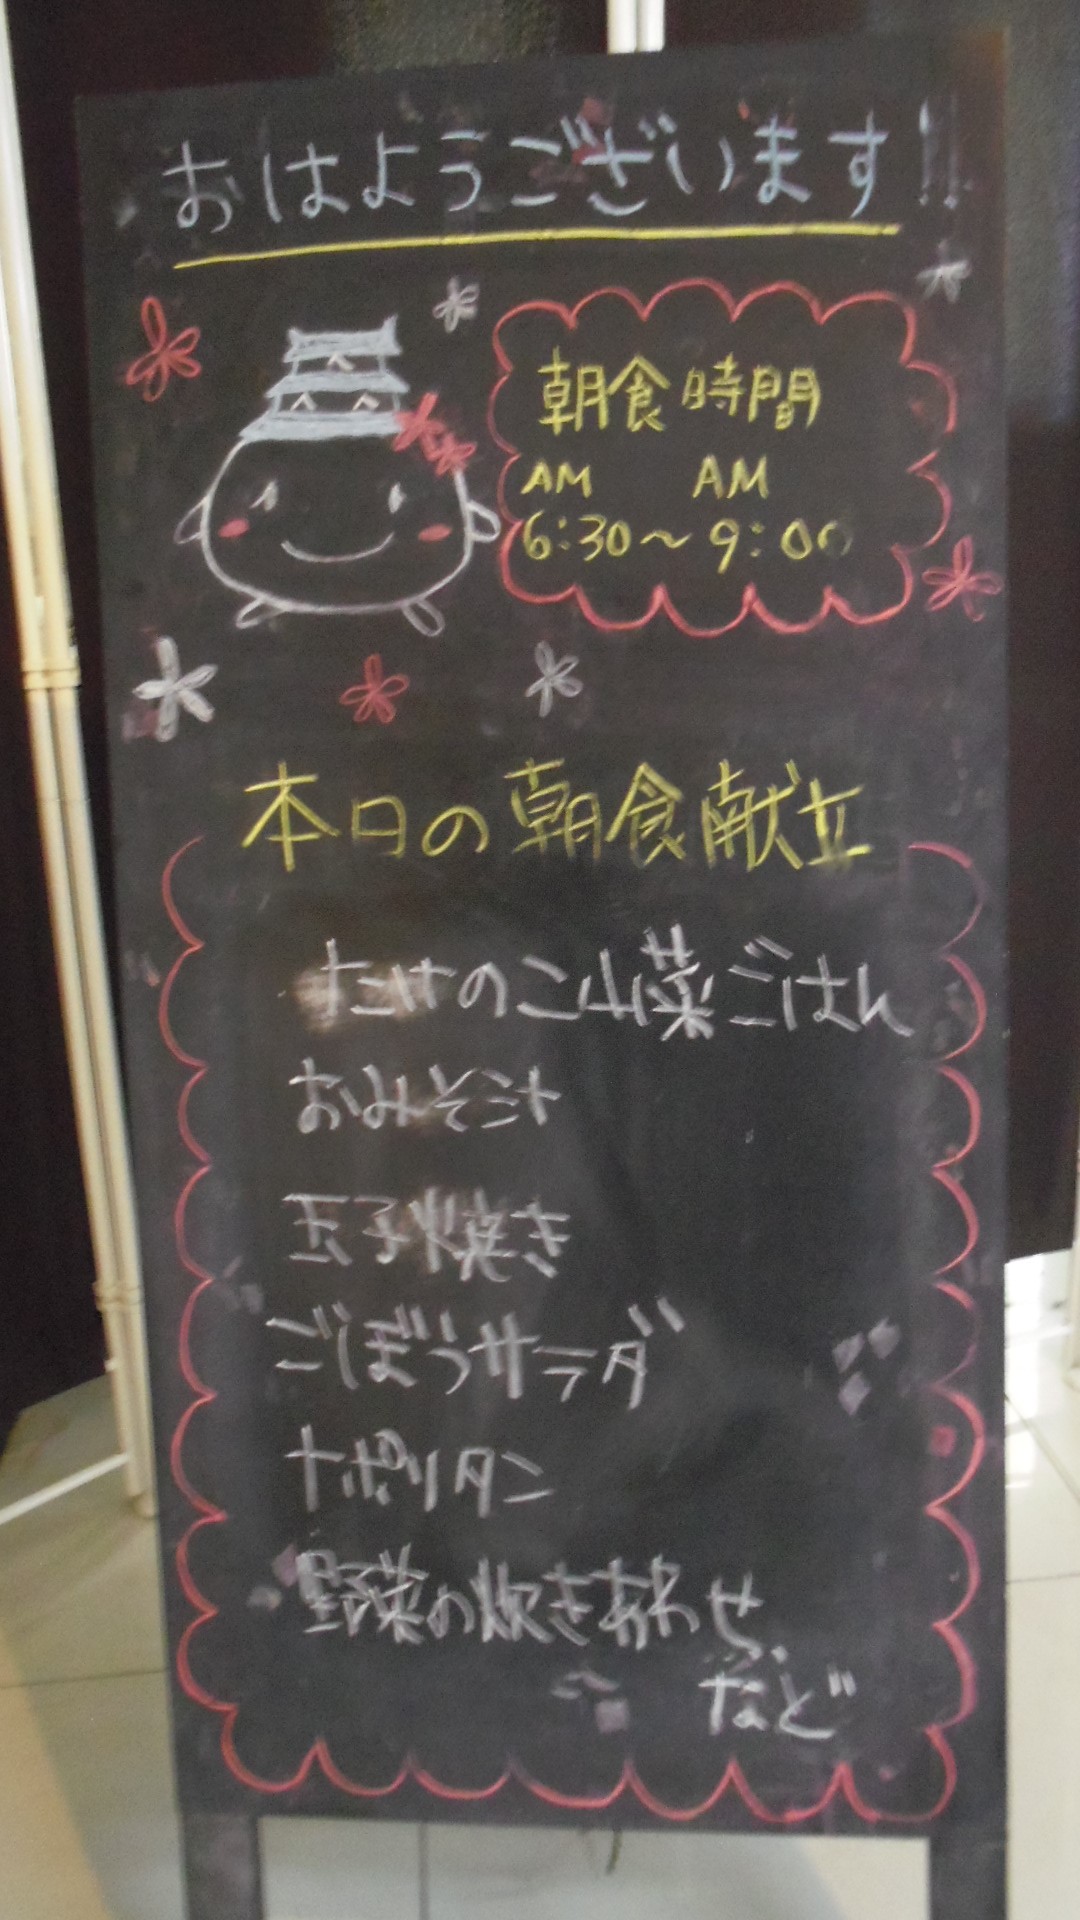 おはようございます!!
朝食時間
AM AM
6:30〜9:00
本日の朝食献立
たけのこ山菜ごはん
おみそ汁
玉子焼き
ごぼうサラダ
ナポリタン
野菜の炊きあわせ
など